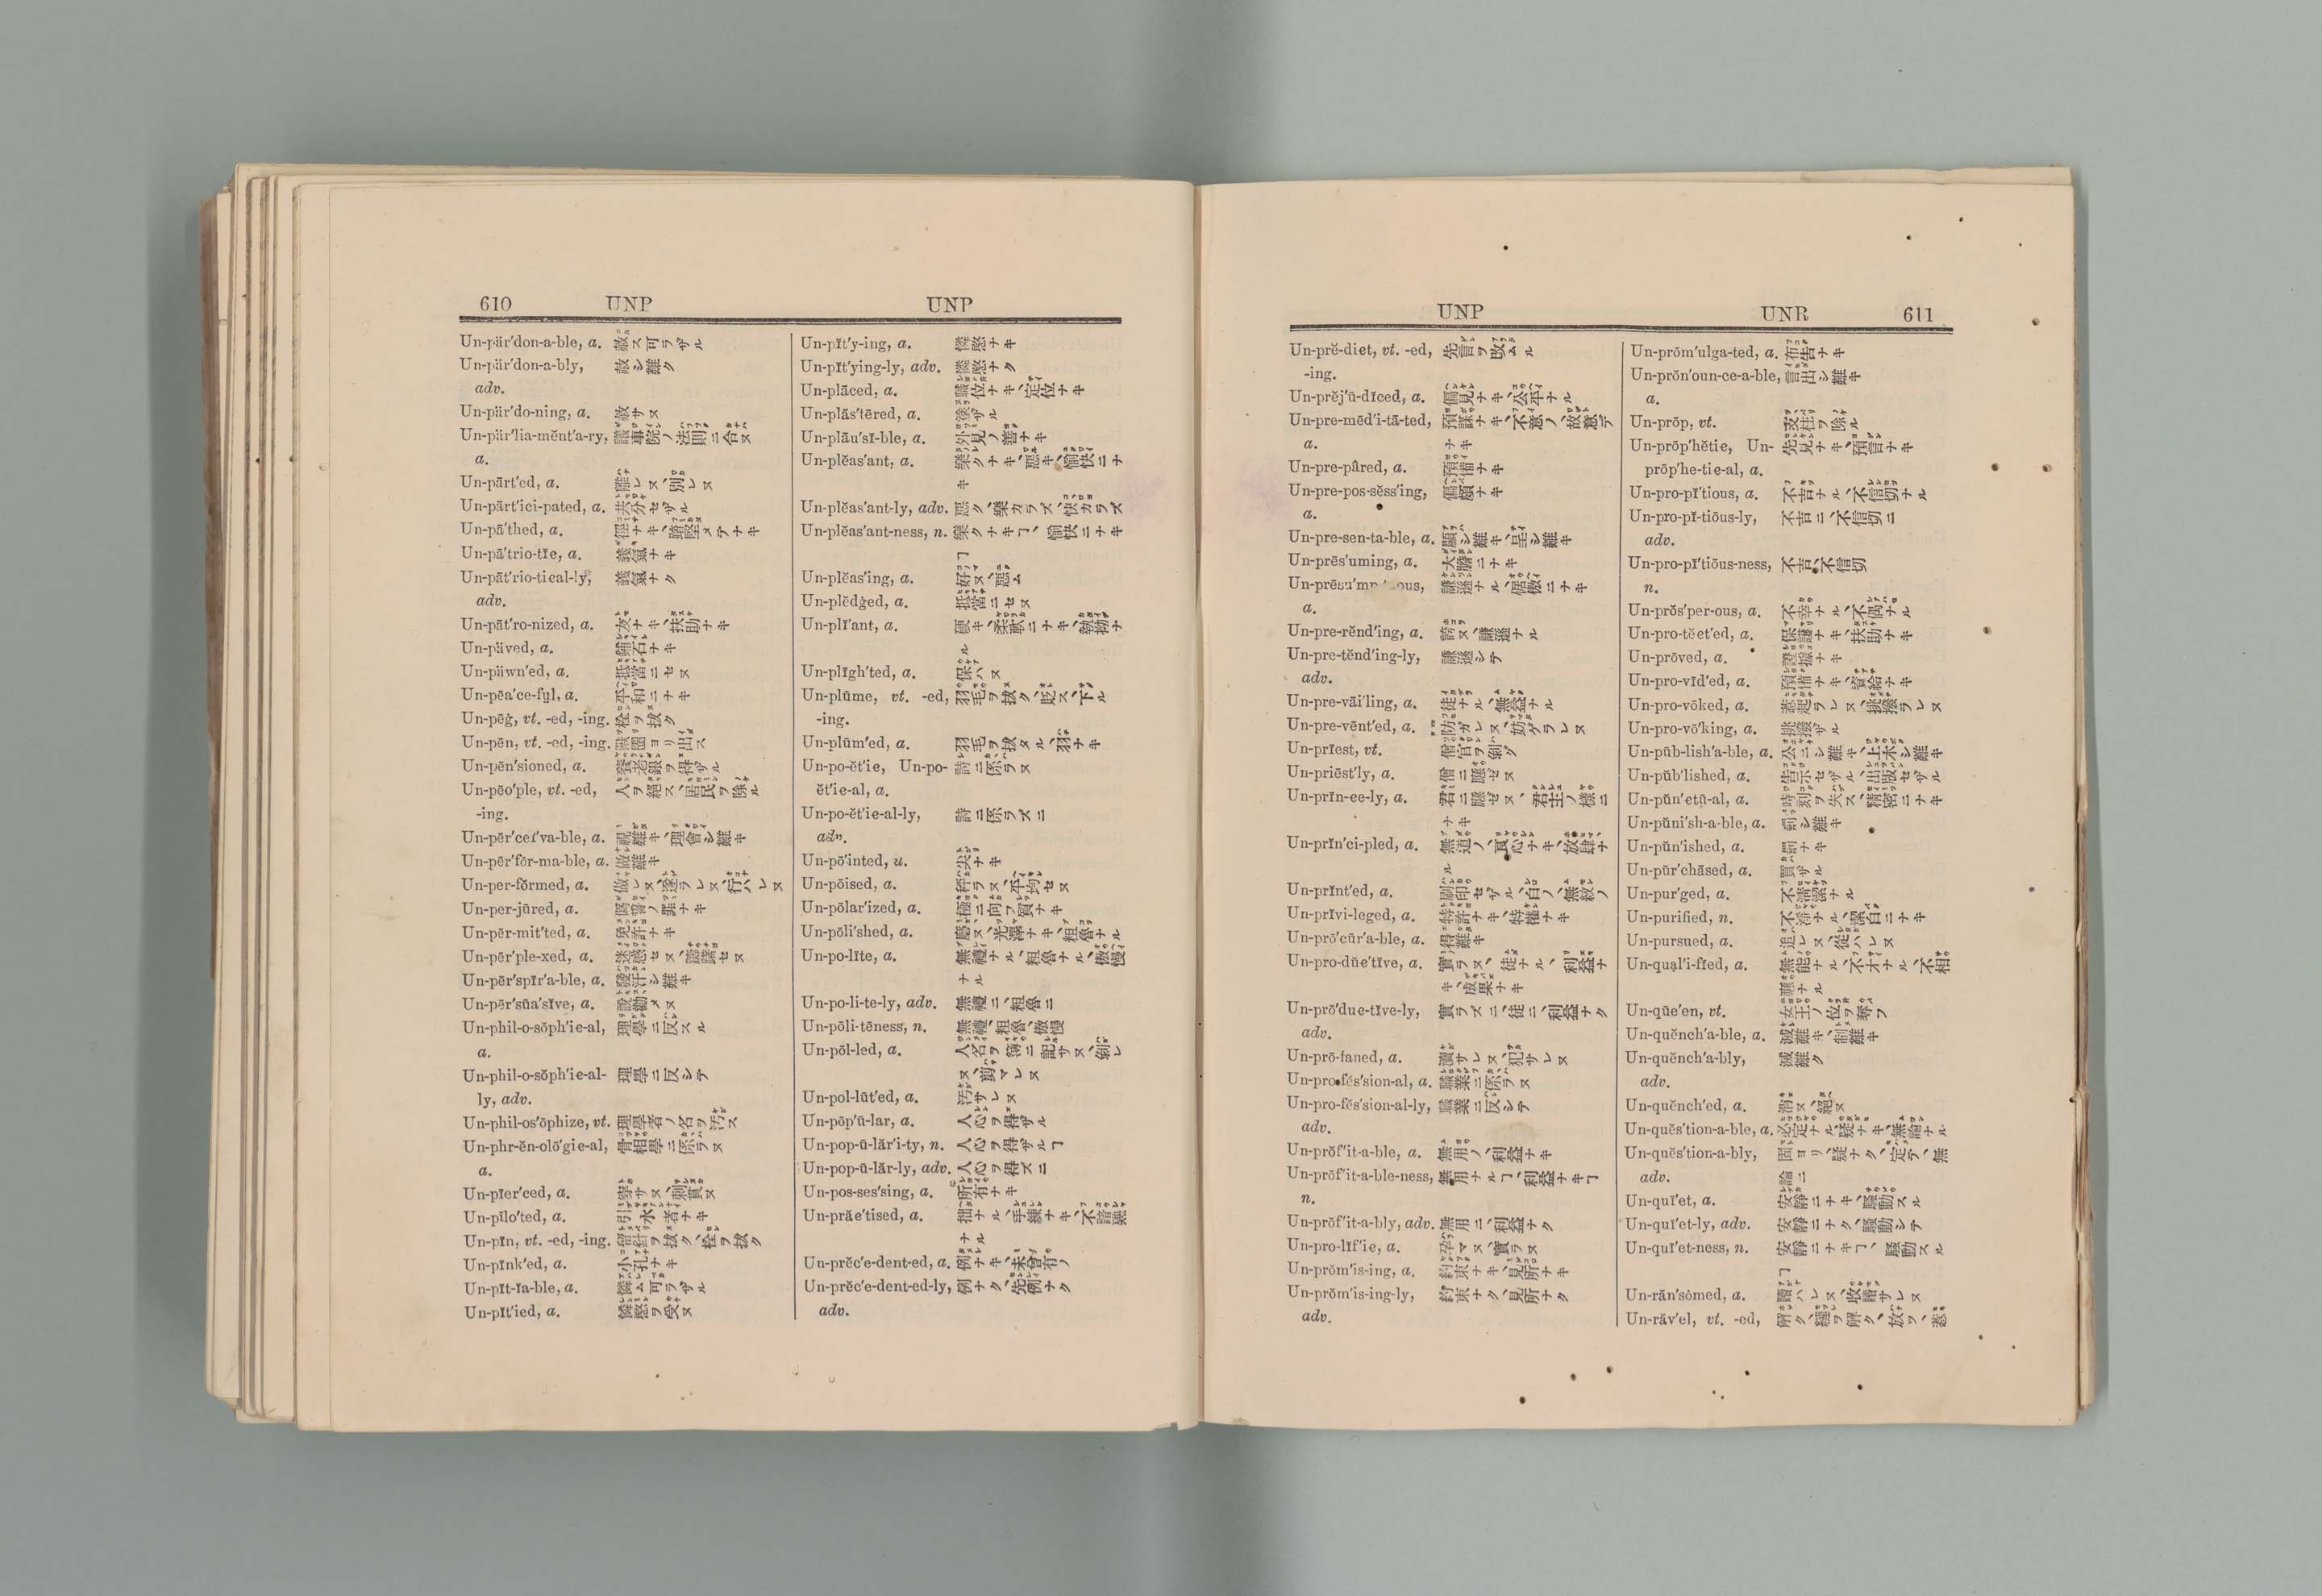 610 UNP UNP
Un-pär′don-a-ble, a. 赦ス可ラザル
Un-pär′don-a-bly, 赦シ難ク
adv.
Un-pär′do-ning, a. 赦サヌ
Un-pär′lia-mĕnt′a-ry, 議事院ノ法則ニ合ヌ
a.
Un-pärt′ed, a. 離レヌ、別レヌ
Un-pärt′ici-pated, a. 共分セザル
Un-pā′thed, a. 徑ナキ、踏堅メテナキ
Un-pā′trio-tĭe, a. 義氣ナキ
Un-păt′rio-tieal-ly, 義氣ナク
adv.
Un-păt′ro-nized, a. 友ナキ、扶助ナキ
Un-päved, a. 鋪石ナキ
Un-päwn′ed, a. 抵當ニセヌ
Un-pēa′ce-ful, a. 平和ニナキ
Un-pĕg, vt. -ed, -ing. 栓ヲ拔ク
Un-pĕn, vt. -ed, -ing. 獸圈ヨリ出ス
Un-pĕn′sioned, a. 養老銀ヲ得ザル
Un-pēo′ple, vt. -ed, 人ヲ絕ス、居民ヲ除ル
-ing.
Un-pēr′ceí′va-ble, a. 視難キ、理會シ難キ
Un-pēr′fŏr-ma-ble, a. 做難キ
Un-per-fŏrmed, a. 做レヌ、遂ラレヌ、行ハレヌ
Un-per-jūred, a. 僞誓ノ罪ナキ
Un-pēr-mit′ted, a. 免許ナキ
Un-pēr′ple-xed, a. 迷惑セヌ、躊躇セヌ
Un-pēr′spīr′a-ble, a. 發汗シ難キ
Un-pēr′sūa′sĭve, a. 說勸メヌ
Un-phil-o-sŏph′ie-al, 理學ニ反スル
a.
Un-phil-o-sŏph′ie-al- 理學ニ反シテ
ly, adv.
Un-philos′ŏphize, vt. 理學者ノ名ヲ汚ス
Un-phr-ĕn-olŏ′gie-al, 骨相學ニ係ラヌ
a.
Un-pĭer′ced, a. 穿サヌ、刺貫ヌ
Un-pīlo′ted, a. 引水者ナキ
Un-pĭn, vt. -ed, -ing. 留針ヲ拔ク、栓ヲ拔ク
Un-pĭnk′ed, a. 小孔ナキ
Un-pĭt-ĭa-ble, a. 憐ム可ラザル
Un-pĭt′ied, a. 憐愍ヲ受ヌ
Un-pĭt′y-ing, a. 憐愍ナキ
Un-pĭt′ying-ly, adv. 憐愍ナク
Un-plāced, a. 職位ナキ、定位ナキ
Un-plăs′tēred, a. 塗ザル
Un-plāu′sĭ-ble, a. 外見ノ善ナキ
Un-plĕas′ant, a. 樂クナキ、惡キ、愉快ニナ
キ
Un-plĕas′ant-ly, adv. 惡ク、樂カラズ、快カラズ
Un-plĕas′ant-ness, n. 樂クナキヿ、愉快ニナキ
ヿ
Un-plĕas′ing, a. 好ヌ、惡ム
Un-plĕdġed, a. 抵當ニセヌ
Un-plī′ant, a. 硬キ、柔軟ニナキ、執拗ナ
ル
Un-plīgh′ted, a. 保ハヌ
Un-plūme, vt. -ed, 羽毛ヲ拔ク、貶ス、下ル
-ing.
Un-plūm′ed, a. 羽毛ヲ拔タル、羽ナキ
Un-po-ĕt′ie, Un-po- 詩ニ係ラヌ
ĕt′ie-al, a.
Un-po-ĕt′ie-al-ly, 詩ニ係ラズニ
adv.
Un-pō′inted, a. 尖ナキ
Un-pōised, a. 秤ラヌ、平均セヌ
Un-pōlar′ized, a. 極ニ向フ質ナキ
Un-pŏli′shed, a. 磨ヌ、光澤ナキ、粗魯ナル
Un-po-līte, a. 無禮ナル、粗魯ナル、傲慢
ナル
Un-po-li-te-ly, adv. 無禮ニ、粗魯ニ
Un-pŏli-tēness, n. 無禮、粗魯、傲慢
Un-pŏl-led, a. 人名ヲ簿ニ記サヌ、剃レ
ヌ、剪マレヌ
Un-pol-lūt′ed, a. 汚サレヌ
Un-pŏp′ū-lar, a. 人心ヲ得ザル
Un-pop-ū-lăr′i-ty, n. 人心ヲ得ザルヿ
Un-pop-ū-lăr-ly, adv. 人心ヲ得ズニ
Un-pos-ses′sing, a. 所有ナキ
Un-prăe′tised, a. 拙ナル、手練ナキ、不諳熟
ナル
Un-prĕc′e-dent-ed, a. 例ナキ、未曾有ノ
Un-prĕc′e-dent-ed-ly, 例ナク、先例ナク
adv.
UNP UNR 611
Un-prĕ-diet, vt. -ed, 先言ヲ改ムル
-ing.
Un-prĕj′ū-dĭced, a. 偏見ナキ、公平ナル
Un-pre-mĕd′i-tā-ted, 預謀ナキ、不意ノ、故意デ
a. ナキ
Un-pre-pâred, a. 預備ナキ
Un-pre-pos-sĕss′ing, 偏頗ナキ
a.
Un-pre-sen-ta-ble, a. 顯シ難キ、呈シ難キ
Un-prēs′uming, a. 大膽ニナキ
謙遜ナル、倨傲ニナキ
a.
Un-pre-rĕnd′ing, a. 誇ヌ、謙遜ナル
Un-pre-tĕnd′ing-ly, 謙遜シテ
adv.
Un-pre-vāi′ling, a. 徒ナル、無益ナル
Un-pre-vĕnt′ed, a. 防ガレヌ、妨ゲラレヌ
Un-prīest, vt. 僧官ヲ剝グ
Un-priēst′ly, a. 僧ニ應ゼヌ
Un-prĭn-ee-ly, a. 君ニ應ゼヌ、君主ノ樣ニ
ナキ
Un-prĭn′ci-pled, a. 無道ノ、良心ナキ、放肆ナ
ル
Un-prĭnt′ed, a. 刷印セザル、白ノ、無紋ノ
Un-prĭvi-leged, a. 特許ナキ、特權ナキ
Un-prō′cūr′a-ble, a. 得難キ
Un-pro-dŭe′tĭve, a. 實ラヌ、徒ナル、利益ナ
キ、成果ナキ
Un-prō′due-tĭve-ly, 實ラズニ、徒ニ、利益ナク
adv.
Un-prō-faned, a. 瀆サレヌ、犯サレヌ
Un-pro-fés′sion-al, a. 職業ニ係ラヌ
Un-pro-fés′sion-al-ly, 職業ニ反シテ
adv.
Un-prŏf′it-a-ble, a. 無用ノ、利益ナキ
Un-prŏf′it-a-ble-ness, 無用ナルヿ、利益ナキヿ
n.
Un-prŏf′it-a-bly, adv. 無用ニ、利益ナク
Un-pro-lĭf′ie, a. 孕マヌ、實ラヌ
Un-prŏm′is-ing, a. 約束ナキ、見所ナキ
Un-prŏm′is-ing-ly, 約束ナク、見所ナク
adv.
Un-prŏm′ulga-ted, a. 布告ナキ
Un-prŏn′oun-ce-a-ble, 言出シ難キ
a.
Un-prŏp, vt. 支柱ヲ除ル
Un-prŏp′hĕtie, Un- 先見ナキ、預言ナキ
prŏp′he-tie-al, a.
Un-pro-pĭ′tious, a. 不吉ナル、不信切ナル
Un-pro-pĭ-tiōus-ly, 不吉ニ、不信切ニ
adv.
Un-pro-pĭ′tiōus-ness, 不吉、不信切
n.
Un-prŏs′per-ous, a. 不幸ナル、不偶ナル
Un-pro-tĕet′ed, a. 保護ナキ、扶助ナキ
Un-prōved, a. 證據ナキ
Un-pro-vīd′ed, a. 預備ナキ、資給ナキ
Un-pro-vōked, a. 惹起ラレヌ、挑撥ラレヌ
Un-pro-vō′king, a. 挑撥ザル
Un-pŭb-lish′a-ble, a. 公ニシ難キ、上木シ難キ
Un-pŭb′lished, a. 告示セザル、出版セザル
Un-pŭn′etū-al, a. 時刻ヲ失ス、精密ニナキ
Un-pŭni′sh-a-ble, a. 罰シ難キ
Un-pŭn′ished, a. 罰ナキ
Un-pūr′chāsed, a. 買ザル
Un-pur′ged, a. 不淸潔ナル
Un-purified, n. 不淨ナル、潔白ニナキ
Un-pursued, a. 追ハレヌ、從ハレヌ
Un-qual′i-fīed, a. 無能ナル、不才ナル、不相
應ナル
Un-qūe′en, vt. 女王ノ位ヲ奪フ
Un-quĕnch′a-ble, a. 滅難キ、制難キ
Un-quĕnch′a-bly, 滅難ク
adv.
Un-quĕnch′ed, a. 消ヌ、絕ヌ
Un-quĕs′tion-a-ble, a. 必定ナル、疑ナキ、無論ナル
Un-quĕs′tion-a-bly, 固ヨリ、疑ナク、定テ、無
adv. 論ニ
Un-quī′et, a. 安靜ニナキ、騷動スル
Un-quī′et-ly, adv. 安靜ニナク、騷動シテ
Un-quī′et-ness, n. 安靜ニナキヿ、騷動スル
ヿ
Un-răn′sômed, a. 贖ハレヌ、收贖サレヌ
Un-răv′el, vt. -ed, 解ク、縺ヲ解ク、放ツ、惹